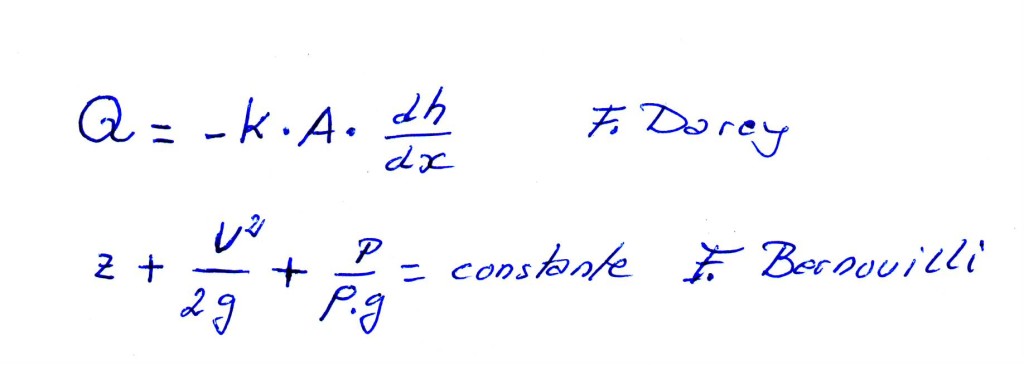 Q = -K·A· dh/dx F. Darcy
z + V²/2g + P/ρ.g = constante F. Bernouilli